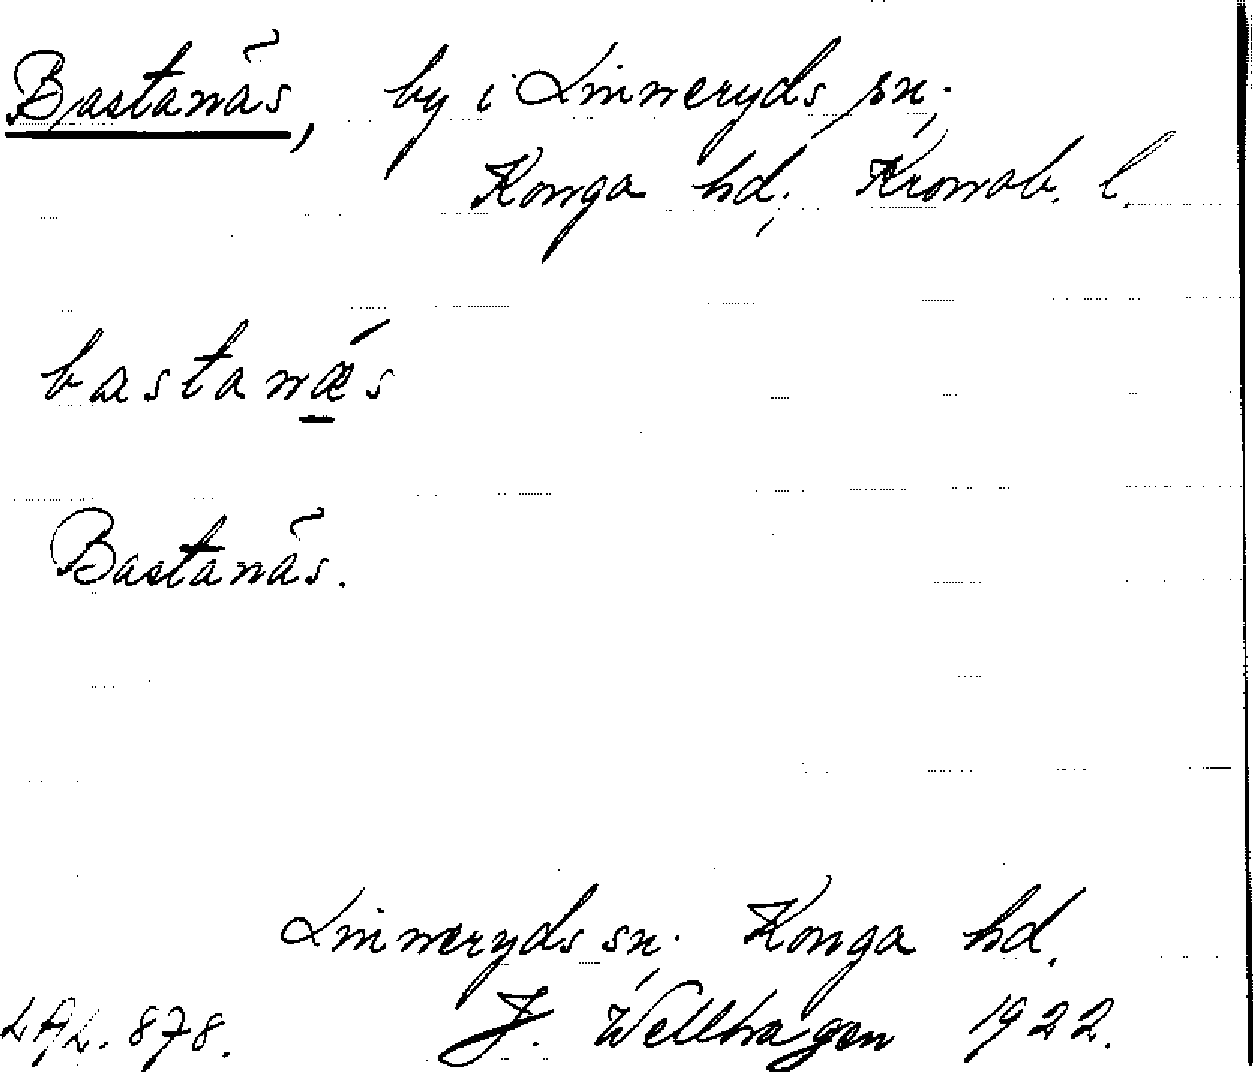 Bastanäs, by i Linneryds sn;
Konga hd; Kronob. l.
bastanǽs
Bastanäs.
Linneryds sn; Konga hd.
LAL. 878. J. Wellhagen 1922.